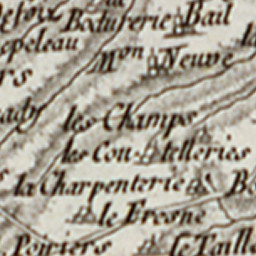 Bodurerie Bail
epeleau
Mon Neuve
rs
les Champs
les Coutelleries
la Charpenterie B
le Fresne
Poiriers le Taill